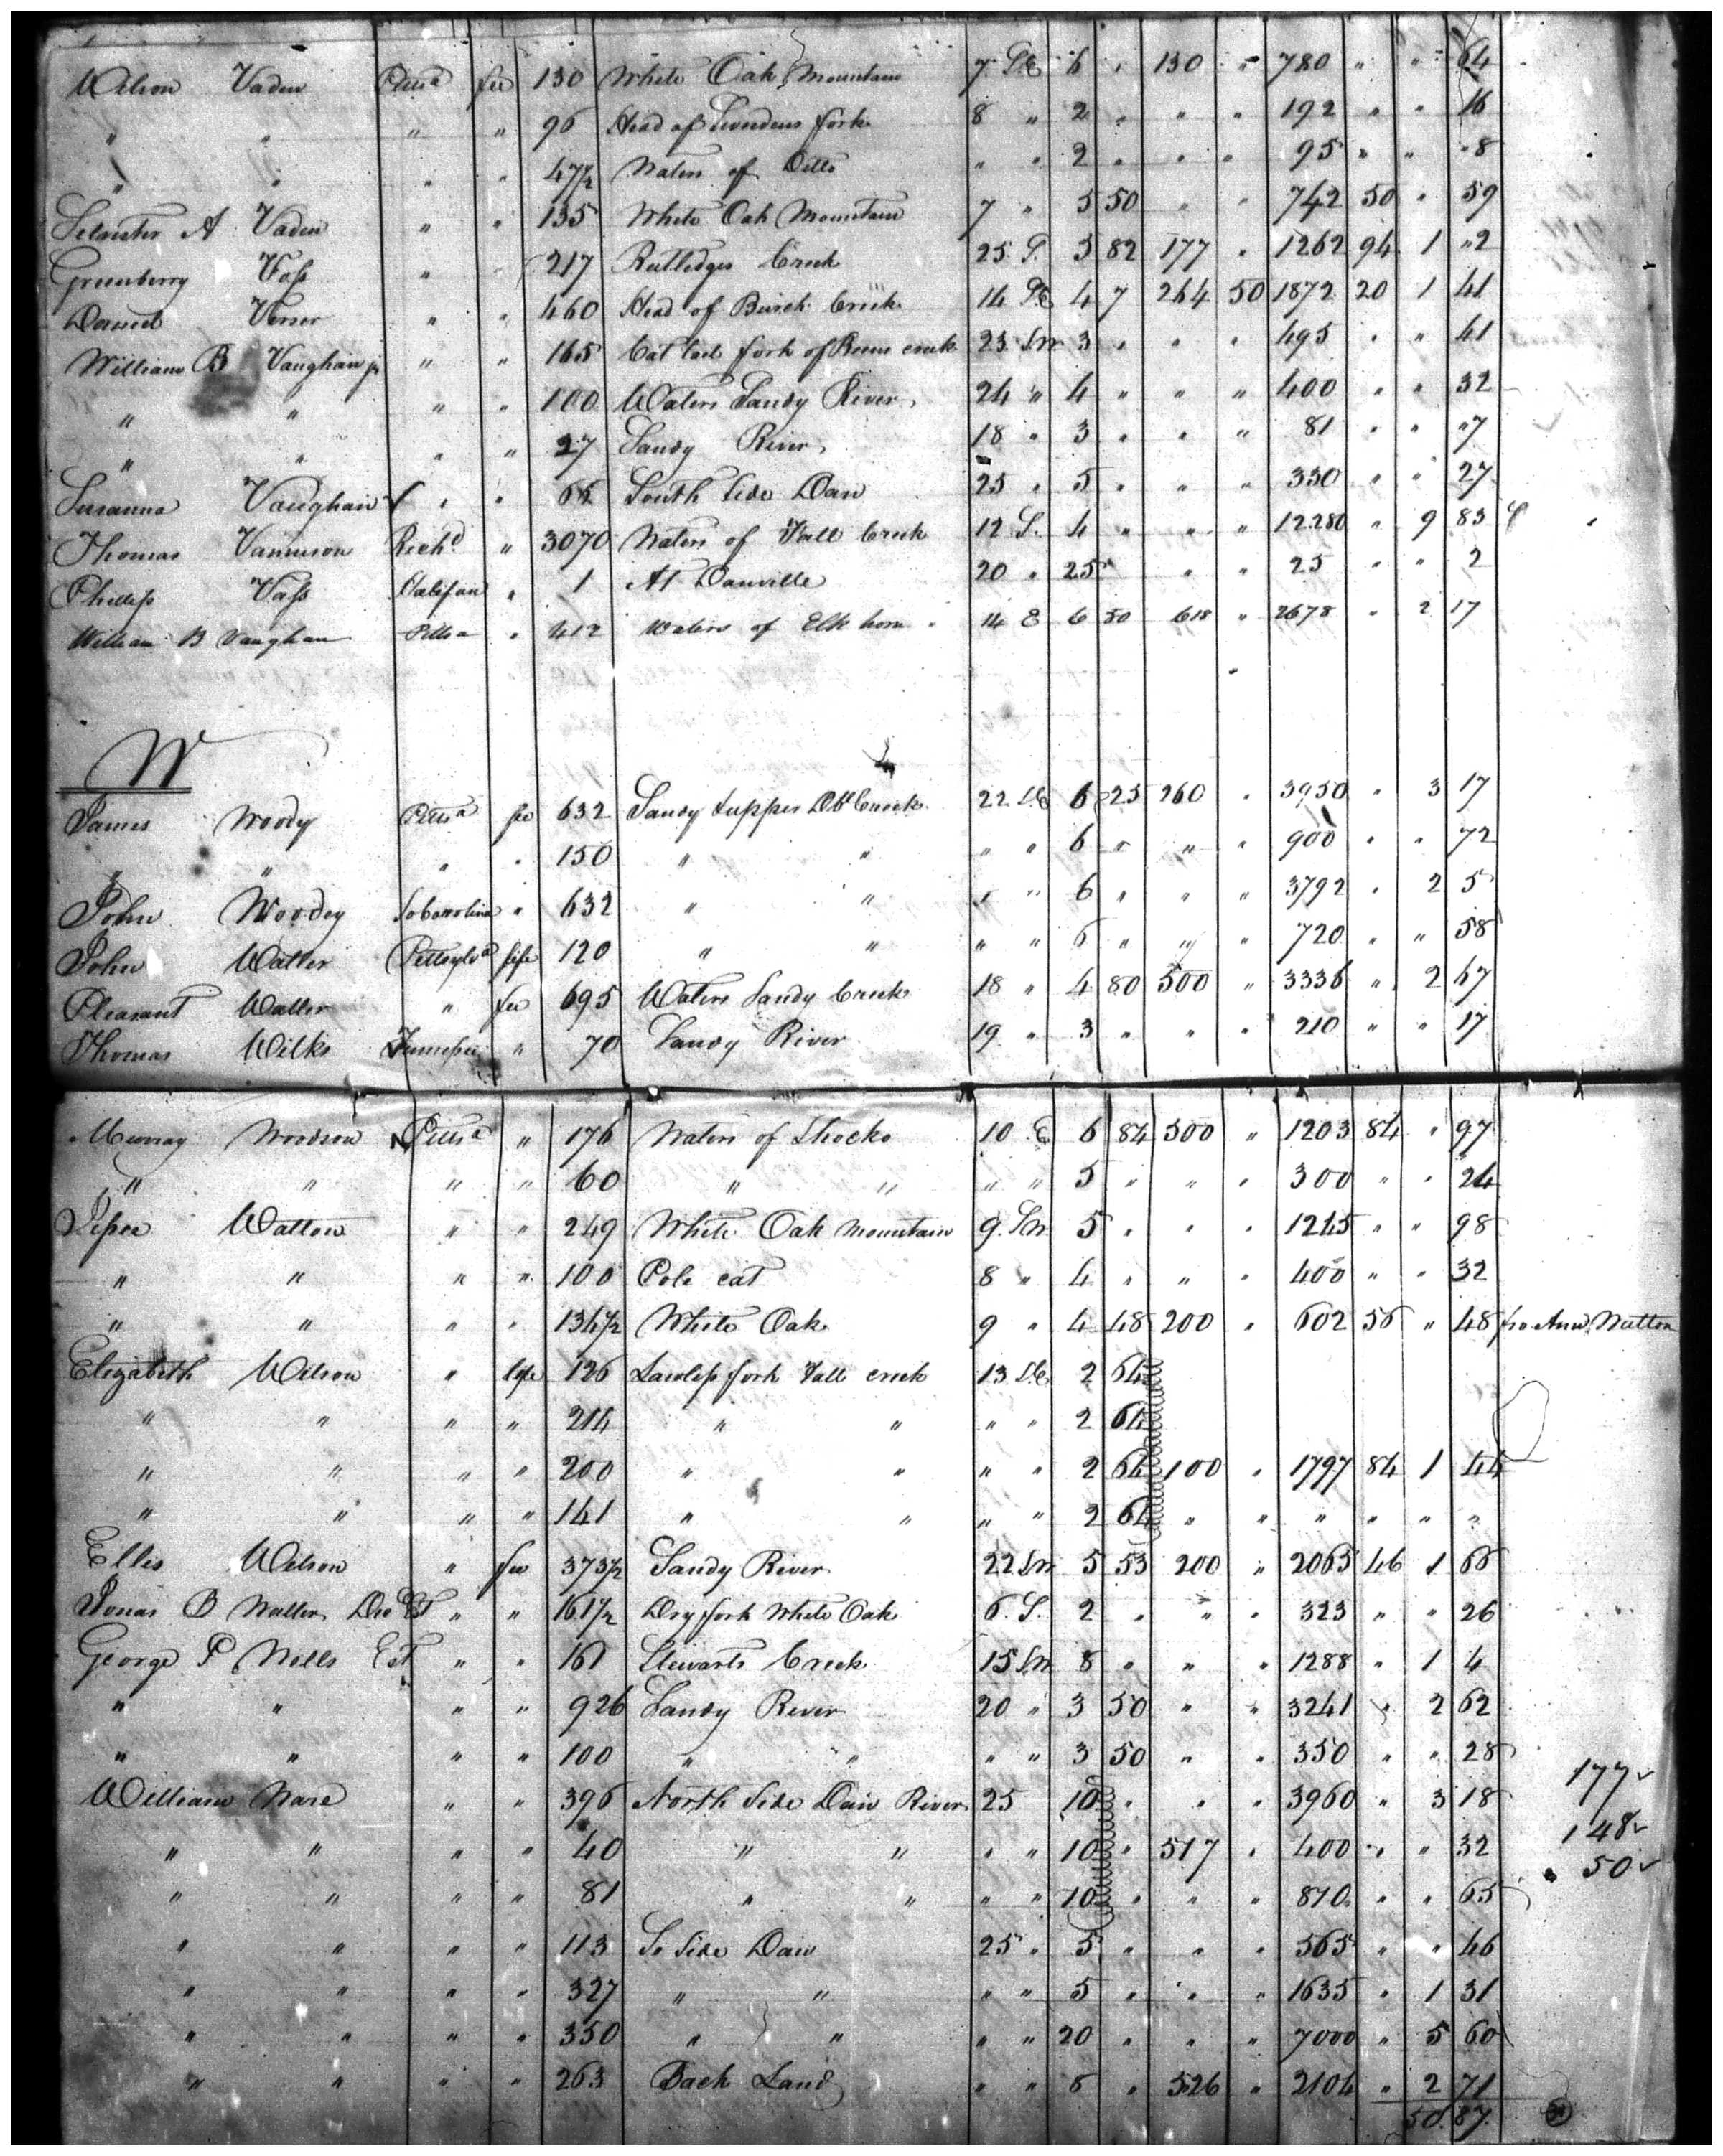 Wilson Vaden Pittsa fee 130 White Oak Mountain 7 S.E 6 " 130 " 780 " " 64
" " " " 96 Head of fork 8 " 2 " " " 192 " " 16
" " " " 47½ Waters of Ditto " " 2 " " " 95 " " "8
A Vaden " " 135 White Oak Mountain 7 " 5 50 " " 742 50 " 59
Greenberry Voss " " 217 Rutledges Creek 25 S. 5 82 177 " 1262 94 1 "2
Daniel Verser " " 460 Head of Burch Creek 14 SE 4 7 264 50 1872 20 1 41
William B Vaughan jr " " 165 Cat tail fork of creek 23 SW 3 " " " 495 " " 41
" " " " 100 Waters Sandy River 24 " 4 " " " 400 " " 32
" " " " 27 Sandy River 18 " 3 " " " 81 " " "7
Susanna Vaughan " " 66 South Side Dan 25 " 5 " " " 330 " " 27
Thomas Vannerson Richd " 3070 Waters of Fall Creek 12 S. 4 " " " 12280 " 9 83
Phillip Vass Halifax " 1 At Danville 20 " 25 " " " 25 " " 2
William B Vaughan Pittsa " 412 Waters of Elk horn 14 E 6 50 618 " 2678 " 2 17
W
James Woody Pittsa fee 632 Sandy & upper Creek 22 SE 6 25 260 " 3950 " 3 17
" " " " 150 " " " " 6 " " " 900 " " 72
John Woodey So Carolina " 632 " " " " 6 " " " 3792 " 2 5
John Waller Pittsylva life 120 " " " " 6 " " " 720 " " 58
Pleasant Waller " fee 695 Waters Sandy Creek 18 " 4 80 500 " 3336 " 2 67
Thomas Wilks Tennessee " 70 Sandy River 19 " 3 " " " 210 " " 17
Murray Woodson Pittsa " 176 Waters of Shocko 10 E 6 84 300 " 1203 84 " 97
" " " " 60 " " " " 5 " " " 300 " " 24
Jesse Walton " " 249 White Oak Mountain 9 SW 5 " " " 1245 " " 98
" " " " 100 Pole cat 8 " 4 " " " 400 " " 32
" " " " 134½ White Oak 9 " 4 48 200 " 602 56 " 48 fro Ann
Elizabeth Wilson " life 126 Lawless fork Fall creek 13 SE 2 64
" " " " 214 " " " " 2 64
" " " " 200 " " " " 2 64 100 " 1797 84 1 44
" " " " 141 " " " " 2 64 " " " " " "
Ellis Wilson " fee 373½ Sandy River 22 SW 5 53 200 " 2065 46 1 66
Jonas B Waller Est " " 161½ Dry fork White Oak 6 S. 2 " " " 323 " " 26
George P Wells Est " " 161 Stewarts Creek 15 SW 8 " " " 1288 " 1 4
" " " " 926 Sandy River 20 " 3 50 " " 3241 " 2 62
" " " " 100 " " " " 3 50 " " 350 " " 28
177
William Ware " " 396 North Side Dan River 25 10 " " " 3960 " 3 18
148
" " " " 40 " " " " 10 " 517 " 400 " " 32
50
" " " " 81 " " " " 10 " " " 810 " " 65
" " " " 113 So Side Dan 25 " 5 " " " 565 " " 46
" " " " 327 " " " " 5 " " " 1635 " 1 31
" " " " 350 " " " " 20 " " " 7000 " 5 60
" " " " 263 Back Land " " 8 " 526 " 2104 " 2 71
50.87